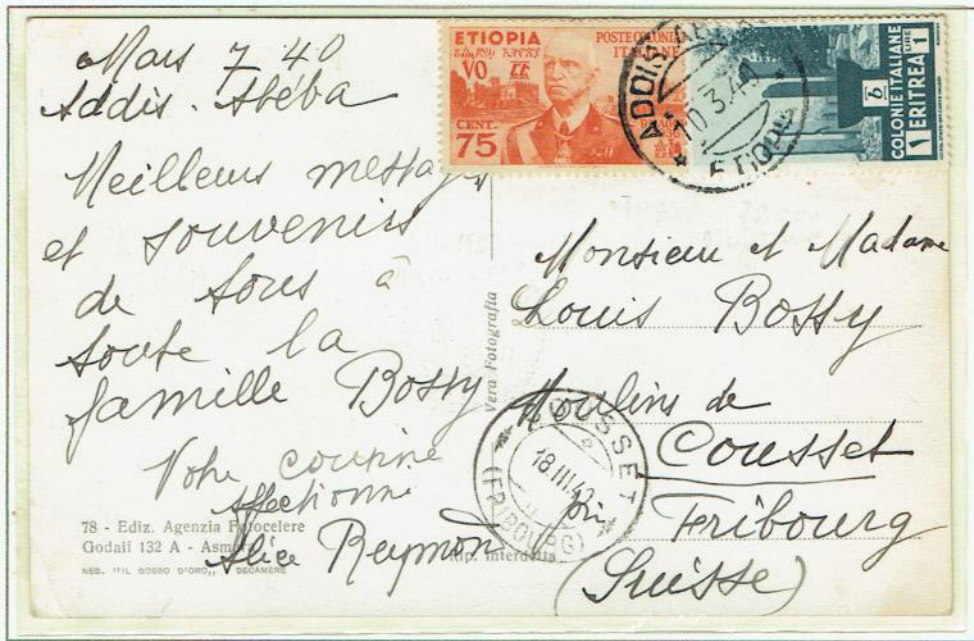 Mars 7 40
Addis. Abéba
Meilleurs messages
et souvenirs
de tous à
toute la
famille Bossy
Votre cousine
affectionné
Alice Reymond
78 - Ediz. Agenzia Fotocelere
Godaif 132 A - Asmara
NEG. "IL GOSSO D'ORO,, - DECAMERE
Vera Fotografia
Rip. interdetta
ETIOPIA
POSTE COLONIALI
ITALIANE
CENT.
75
ADDIS ABEBA
10.3.40
ETIOPIA
COLONIE ITALIANE
1 ERITREA 1
LIRE
Monsieur et Madame
Louis Bossy
Moulins de
Cousset
Fribourg
(Suisse)
COUSSET
18.III.40
(FRIBOURG)